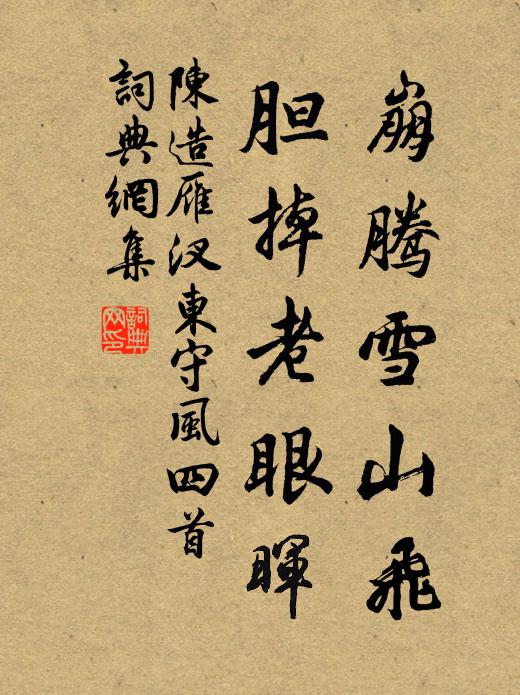 崩腾雪山飛
胆掉老眼暉
陳造雁汊東守風四首
詞典網集
詞典網印